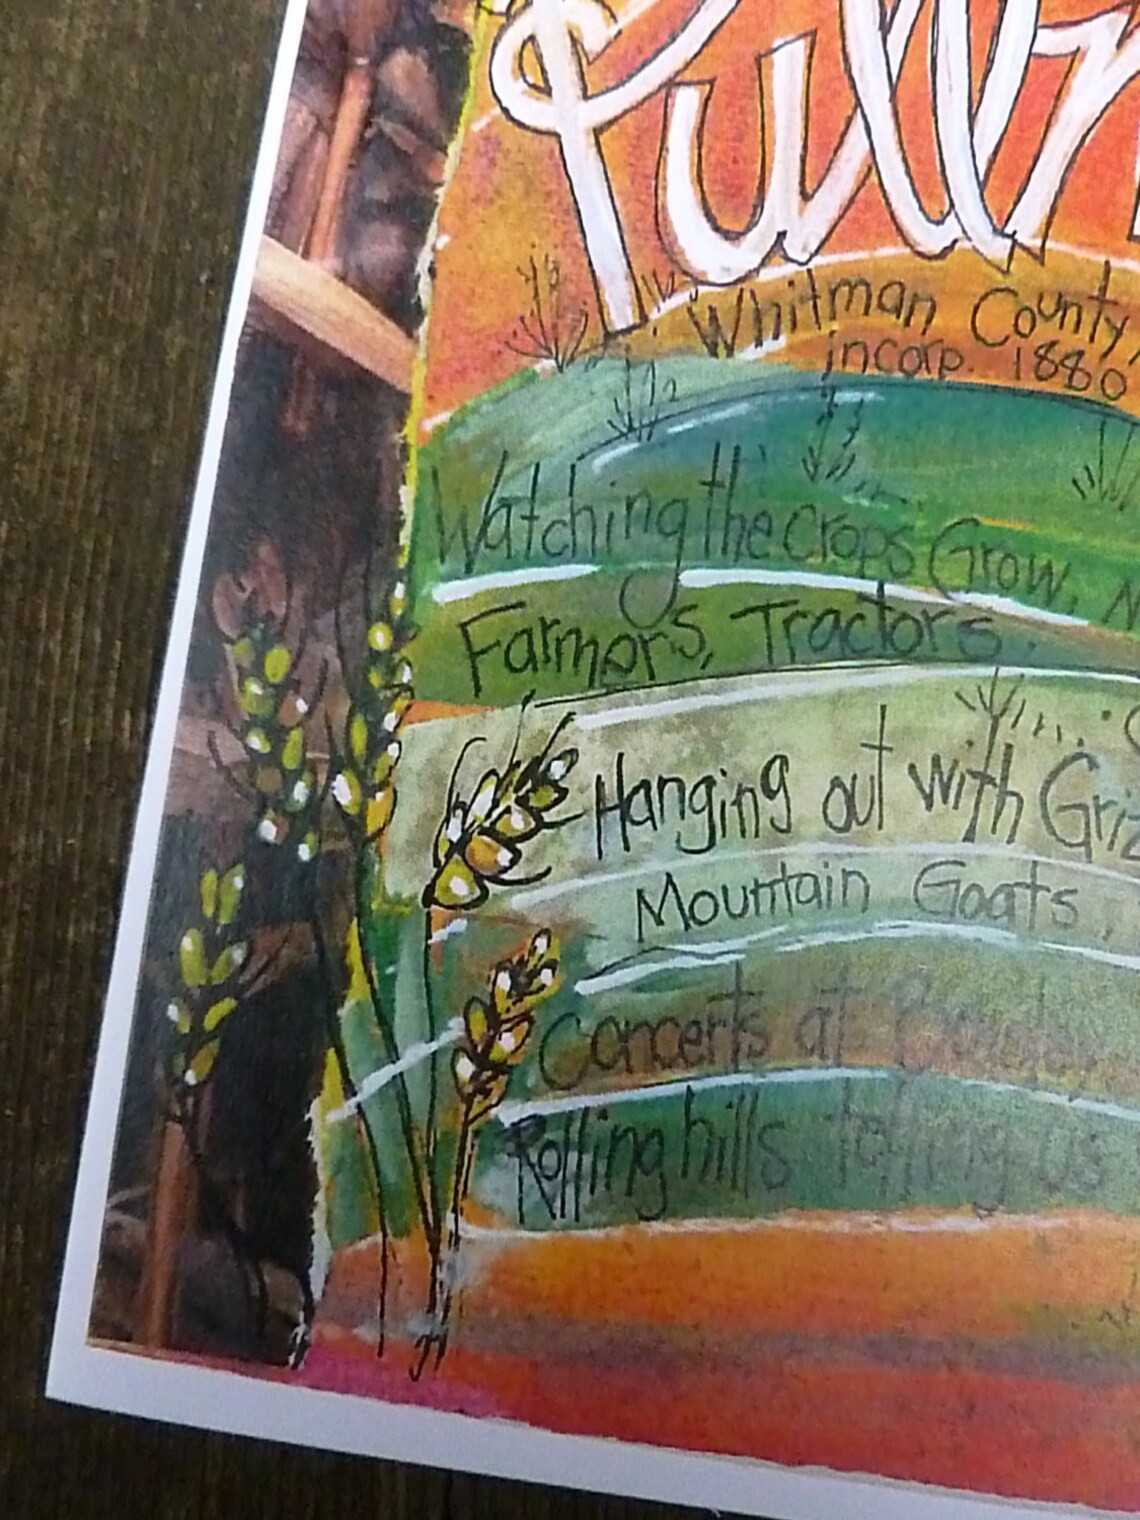 Pullm
Whitman County,
incorp. 1880
Watching the crops Grow, N
Farmers, Tractors.
Hanging out with Griz
Mountain Goats,
Concerts at
Rolling hills telling us